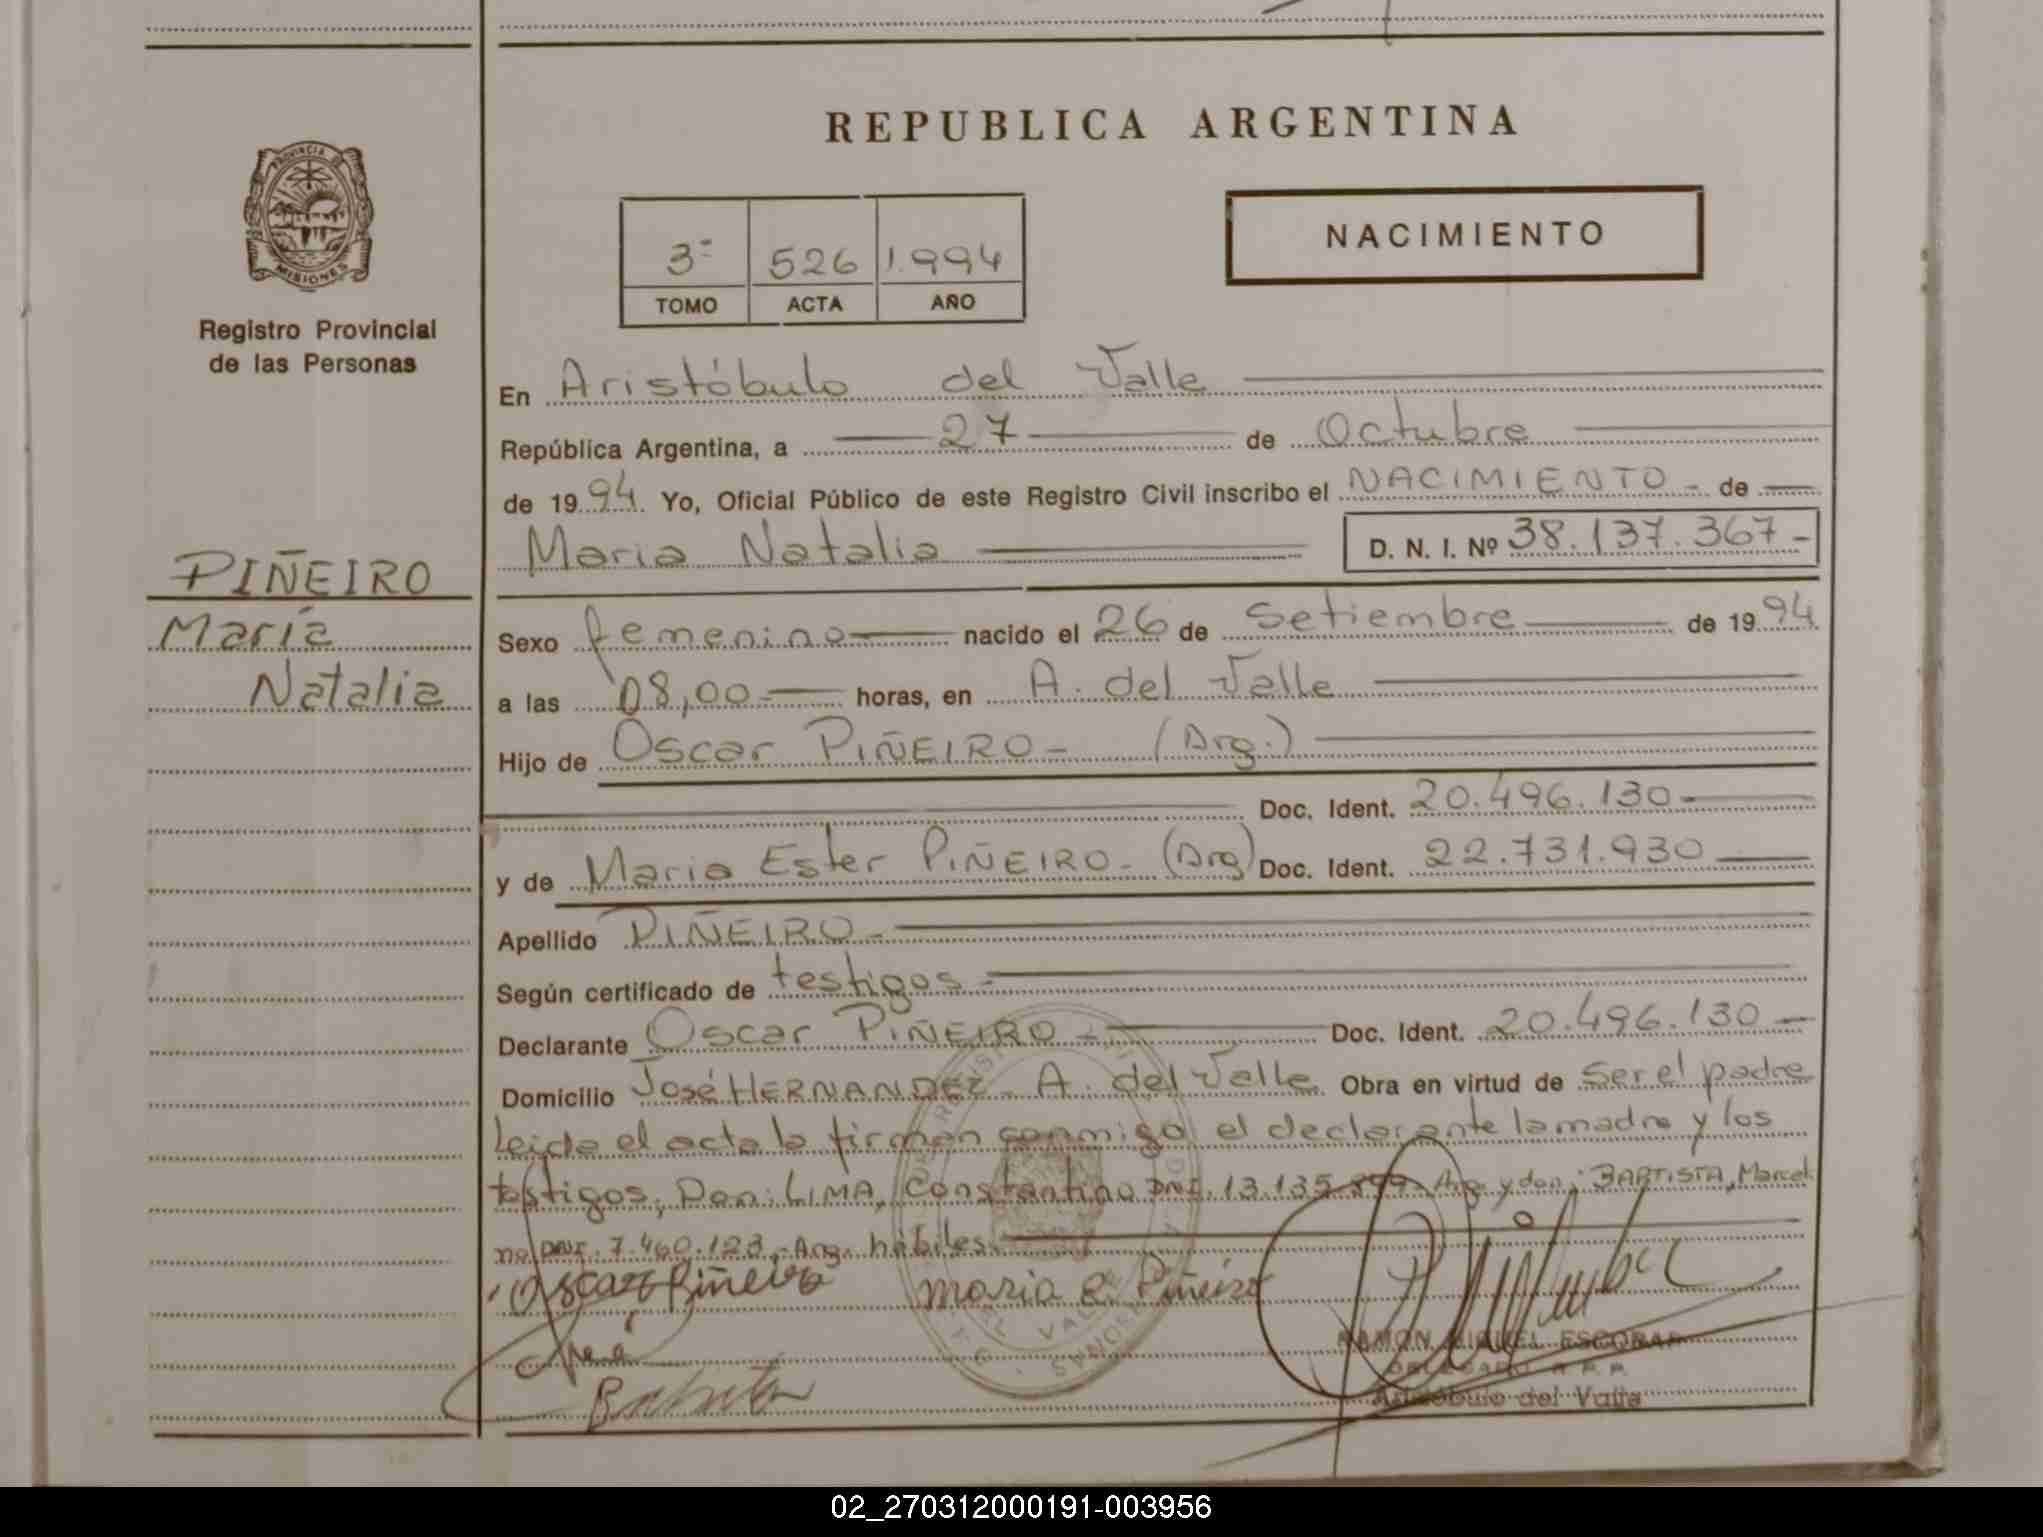 REPUBLICA ARGENTINA
PROVINCIA DE
MISIONES
Registro Provincial
de las Personas
NACIMIENTO
3º 526 1.994
TOMO ACTA AÑO
En Aristóbulo del Valle
República Argentina, a 27 de Octubre
de 1994. Yo, Oficial Público de este Registro Civil inscribo el NACIMIENTO - de
Maria Natalia D. N. I. Nº 38.137.367-
PIÑEIRO
María
Natalia
Sexo femenino nacido el 26 de Setiembre de 1994
a las 08,00 horas, en A. del Valle
Hijo de Oscar PIÑEIRO- (Arg.)
Doc. Ident. 20.496.130-
y de Maria Ester PIÑEIRO- (Arg) Doc. Ident. 22.731.930
Apellido PIÑEIRO-
Según certificado de testigos-
Declarante Oscar PIÑEIRO- Doc. Ident. 20.496.130-
Domicilio José HERNANDEZ- A. del Valle Obra en virtud de Ser el padre
Leida el acta la firman conmigo el declarante la madre y los
testigos; Don: LIMA, Constantino DNI. 13.135. Arg. y don: BAPTISTA, Marceli
no DNI. 7.460.123.- Arg. hábiles.
Oscar Piñeiro
maria e. Piñeiro
RAMON MIGUEL ESCOBAR
DELEGADO R.P.P.
Aristóbulo del Valle
02_270312000191-003956